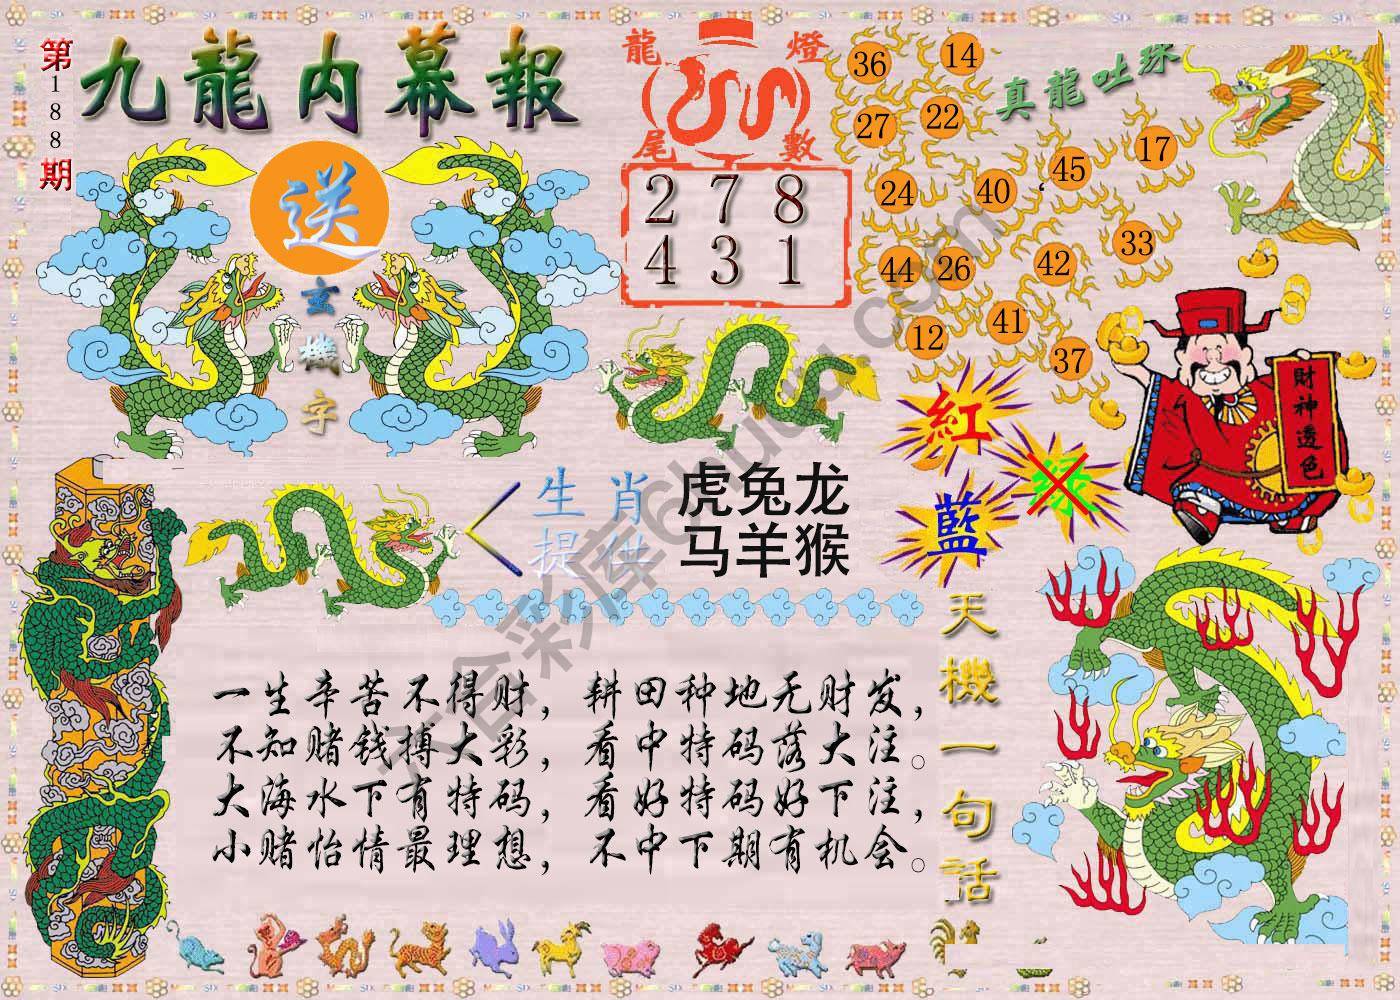 第188期
九龍内幕報
送
玄機字
龍燈
尾數
2 7 8
4 3 1
真龍吐珠
36 14
27 22
45 17
24 40
33
44 26 42
12 41
37
財神透色
紅
綠
藍
生肖
提供
虎兔龙
马羊猴
天機一句话
一生辛苦不得财，耕田种地无财发，
不知赌钱搏大彩，看中特码落大注。
大海水下有特码，看好特码好下注，
小赌怡情最理想，不中下期有机会。
六合彩库6huu.com